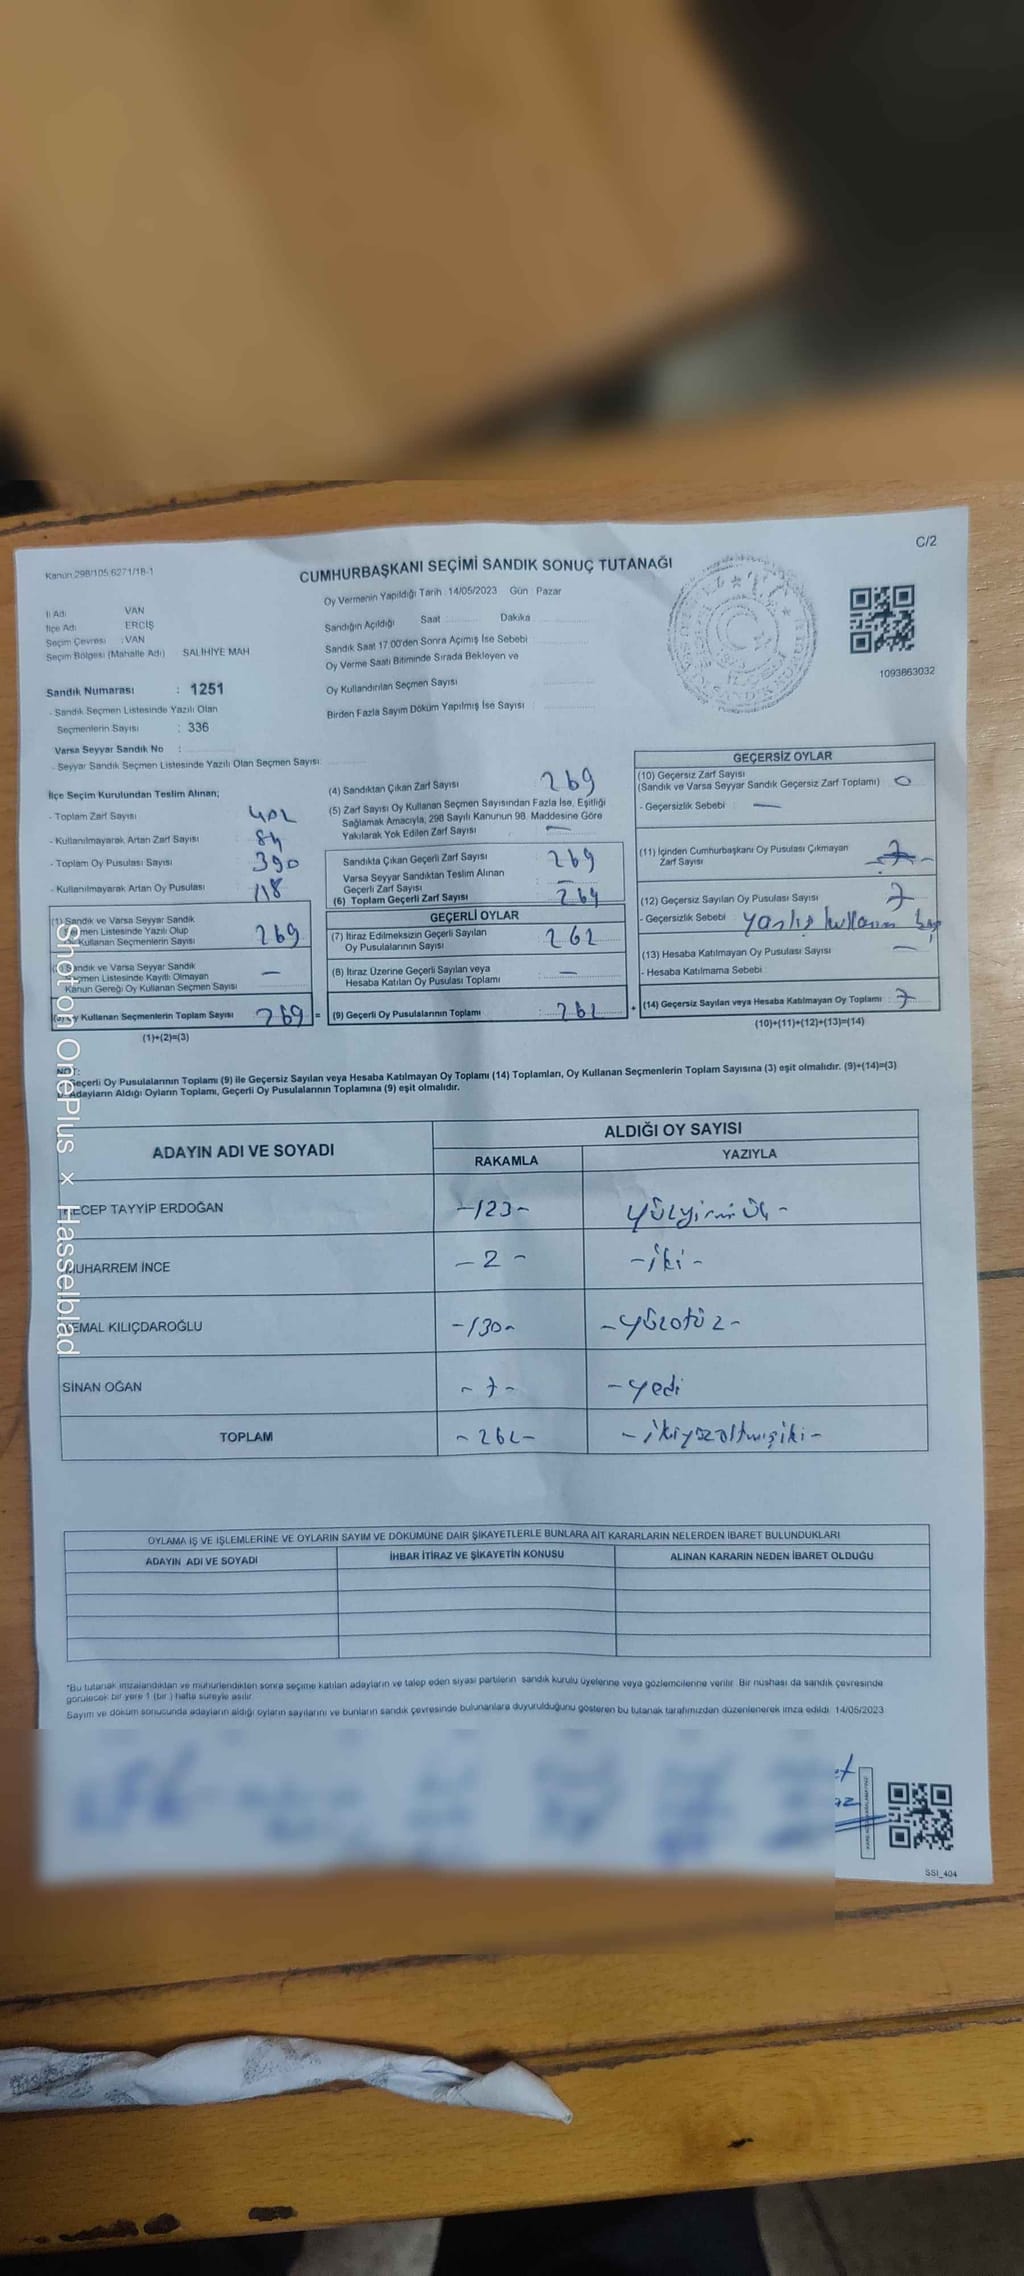 C/2
Kanun 298/105 6271/18-1
CUMHURBAŞKANI SEÇİMİ SANDIK SONUÇ TUTANAĞI
İl Adı VAN
İlçe Adı ERCİŞ
Seçim Çevresi : VAN
Seçim Bölgesi (Mahalle Adı) SALİHİYE MAH
Oy Vermenin Yapıldığı Tarih : 14/05/2023 Gün Pazar
Sandığın Açıldığı Saat Dakika
Sandık Saat 17.00'den Sonra Açımış İse Sebebi
Oy Verme Saati Bitiminde Sırada Bekleyen ve
Oy Kullandırılan Seçmen Sayısı
Birden Fazla Sayım Döküm Yapılmış İse Sayısı :
1093863032
Sandık Numarası : 1251
- Sandık Seçmen Listesinde Yazılı Olan
Seçmenlerin Sayısı : 336
Varsa Seyyar Sandık No :
- Seyyar Sandık Seçmen Listesinde Yazılı Olan Seçmen Sayısı:
İlçe Seçim Kurulundan Teslim Alınan;
- Toplam Zarf Sayısı 402
- Kullanılmayarak Artan Zarf Sayısı 84
- Toplam Oy Pusulası Sayısı 390
- Kullanılmayarak Artan Oy Pusulası 118
(1) Sandık ve Varsa Seyyar Sandık
Listesinde Yazılı Olup
Kullanan Seçmenlerin Sayısı 269
Sandık ve Varsa Seyyar Sandık
Listesinde Kayıtlı Olmayan
Kanun Gereği Oy Kullanan Seçmen Sayısı —
Kullanan Seçmenlerin Toplam Sayısı 269 =
(1)+(2)=(3)
(4) Sandıktan Çıkan Zarf Sayısı 269
(5) Zarf Sayısı Oy Kullanan Seçmen Sayısından Fazla İse, Eşitliği
Sağlamak Amacıyla, 298 Sayılı Kanunun 98. Maddesine Göre
Yakılarak Yok Edilen Zarf Sayısı —
Sandıkta Çıkan Geçerli Zarf Sayısı 269
Varsa Seyyar Sandıktan Teslim Alınan
Geçerli Zarf Sayısı —
(6) Toplam Geçerli Zarf Sayısı 269
GEÇERLİ OYLAR
(7) İtiraz Edilmeksizin Geçerli Sayılan
Oy Pusulalarının Sayısı 262
(8) İtiraz Üzerine Geçerli Sayılan veya
Hesaba Katılan Oy Pusulası Toplamı —
(9) Geçerli Oy Pusulalarının Toplamı : 262 +
GEÇERSİZ OYLAR
(10) Geçersiz Zarf Sayısı
(Sandık ve Varsa Seyyar Sandık Geçersiz Zarf Toplamı) 0
- Geçersizlik Sebebi : —
(11) İçinden Cumhurbaşkanı Oy Pusulası Çıkmayan
Zarf Sayısı
(12) Geçersiz Sayılan Oy Pusulası Sayısı 7
- Geçersizlik Sebebi yanlış
(13) Hesaba Katılmayan Oy Pusulası Sayısı —
- Hesaba Katılmama Sebebi :
(14) Geçersiz Sayılan veya Hesaba Katılmayan Oy Toplamı : 7
(10)+(11)+(12)+(13)=(14)
NOT:
Geçerli Oy Pusulalarının Toplamı (9) ile Geçersiz Sayılan veya Hesaba Katılmayan Oy Toplamı (14) Toplamları, Oy Kullanan Seçmenlerin Toplam Sayısına (3) eşit olmalıdır. (9)+(14)=(3)
Adayların Aldığı Oyların Toplamı, Geçerli Oy Pusulalarının Toplamına (9) eşit olmalıdır.
ADAYIN ADI VE SOYADI
ALDIĞI OY SAYISI
RAKAMLA YAZIYLA
RECEP TAYYİP ERDOĞAN -123- yüzyirmi üç -
MUHARREM İNCE - 2 - -iki-
KEMAL KILIÇDAROĞLU -130- -yüzotuz-
SİNAN OĞAN - 7 - -yedi
TOPLAM -262- -ikiyüzaltmışiki-
OYLAMA İŞ VE İŞLEMLERİNE VE OYLARIN SAYIM VE DÖKÜMÜNE DAİR ŞİKAYETLERLE BUNLARA AİT KARARLARIN NELERDEN İBARET BULUNDUKLARI
ADAYIN ADI VE SOYADI İHBAR İTİRAZ VE ŞİKAYETİN KONUSU ALINAN KARARIN NEDEN İBARET OLDUĞU
*Bu tutanak imzalandıktan ve mühürlendikten sonra seçime katılan adayların ve talep eden siyasi partilerin sandık kurulu üyelerine veya gözlemcilerine verilir. Bir nüshası da sandık çevresinde
görülecek bir yere 1 (bir) hafta süreyle asılır.
Sayım ve döküm sonucunda adayların aldığı oyların sayılarını ve bunların sandık çevresinde bulunanlara duyurulduğunu gösteren bu tutanak tarafımızdan düzenlenerek imza edildi. 14/05/2023
SSI_404
Shot on OnePlus × Hasselblad